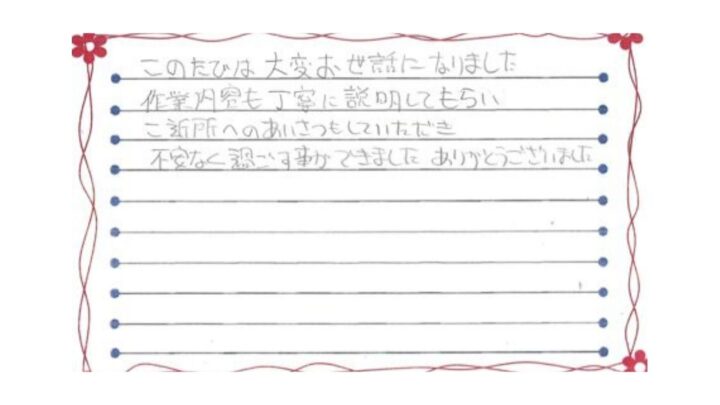 このたびは 大変お世話になりました
作業内容も丁寧に説明してもらい
ご近所へのあいさつもしていただき
不安なく過ごす事ができました ありがとうございました